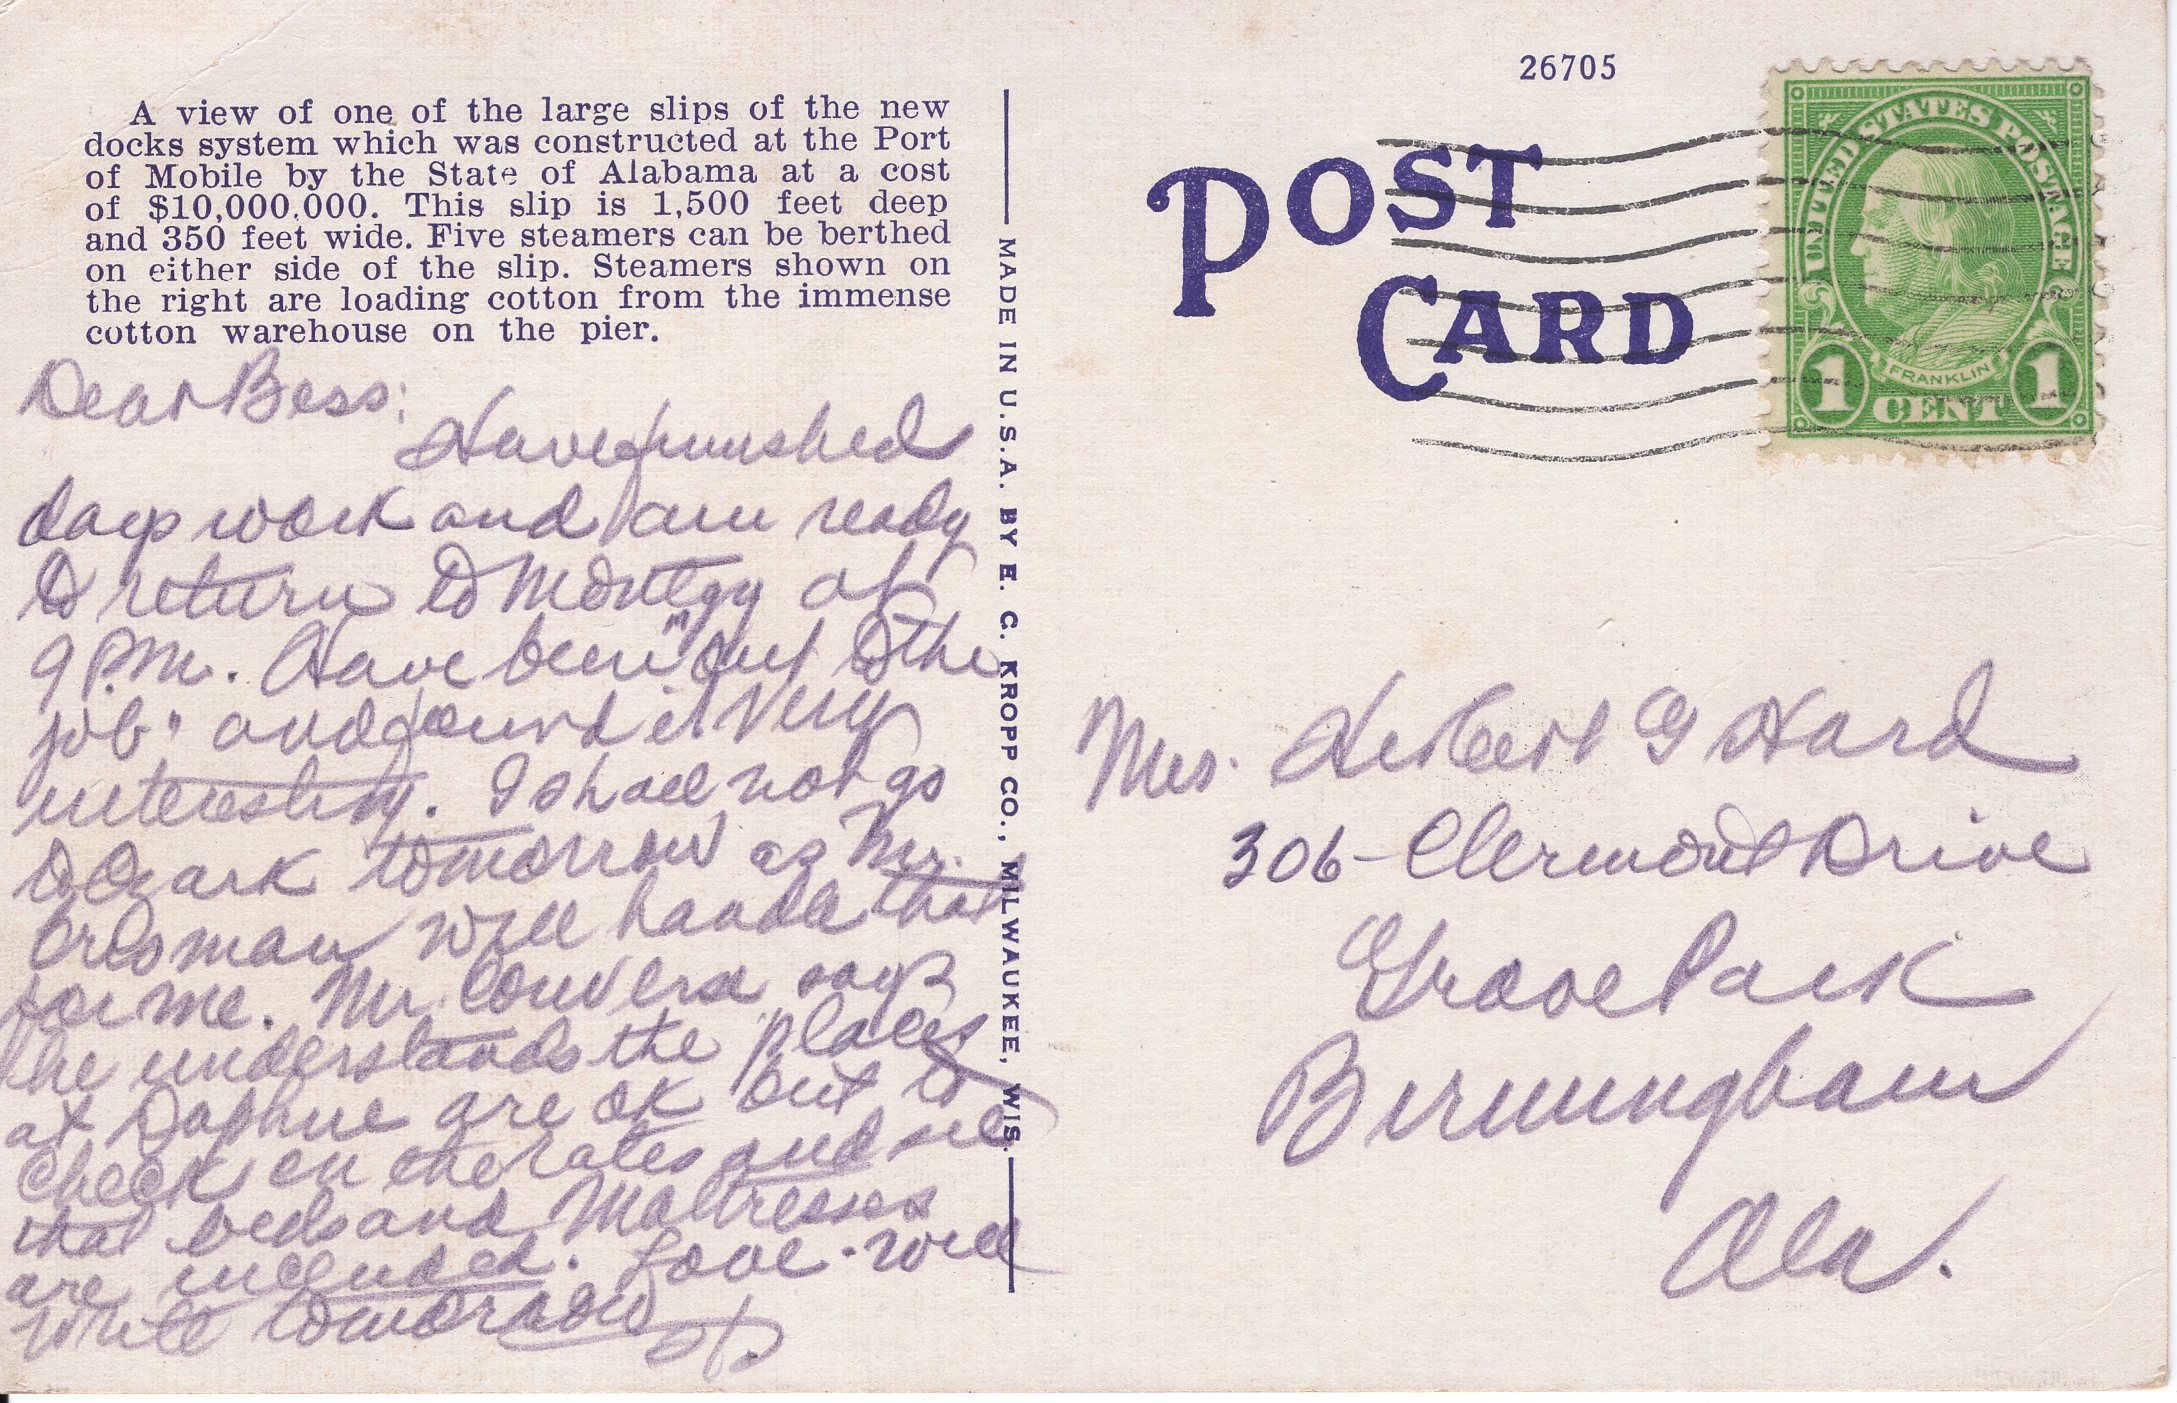 26705
A view of one of the large slips of the new
docks system which was constructed at the Port
of Mobile by the State of Alabama at a cost
of $10,000,000. This slip is 1,500 feet deep
and 350 feet wide. Five steamers can be berthed
on either side of the slip. Steamers shown on
the right are loading cotton from the immense
cotton warehouse on the pier.
Dear Bess:
Have finished
days work and am ready
to return to Montgy at
9 P.M. Have been "out to the
job" and found it very
interesting. I shall not go
to Ozark tomorrow as Mr.
will handle that
for me. Mr. Converse says
he understands the places
at Daphne are OK but to
check on the rates and see
that beds and mattresses
are included. Love. Will
write tomorrow
MADE IN U.S.A. BY E. C. KROPP CO., MILWAUKEE, WIS.
POST
CARD
UNITED STATES POSTAGE
FRANKLIN
1 CENT 1
Mrs. Herbert G Hard
306 - Clermont Drive
Grove Park
Birmingham
Ala.